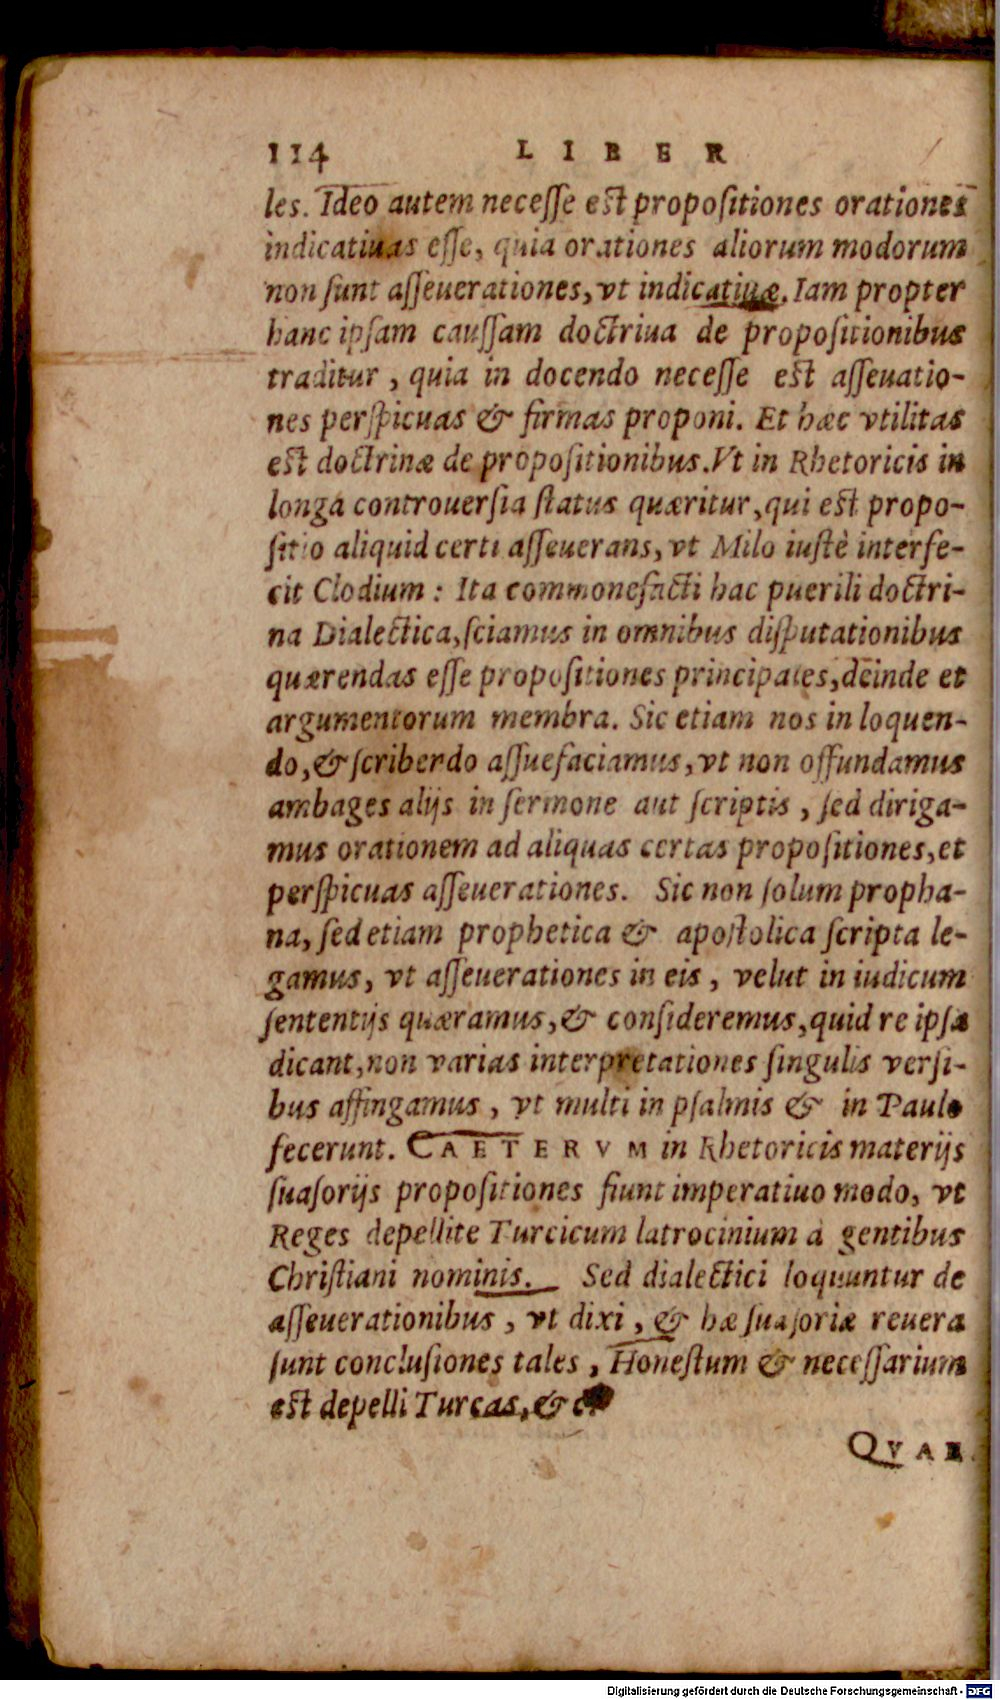 114 LIBER
les. Ideo autem necesse est propositiones orationes
indicatiuas esse, quia orationes aliorum modorum
non sunt asseuerationes, vt indicatiuæ. Iam propter
hanc ipsam caussam doctriua de propositionibus
traditur, quia in docendo necesse est asseuatio-
nes perspicuas & firmas proponi. Et hæc vtilitas
est doctrinæ de propositionibus. Vt in Rhetoricis in
longa controuersia status quæritur, qui est propo-
sitio aliquid certi asseuerans, vt Milo iustè interfe-
cit Clodium: Ita commonefacti hac puerili doctri-
na Dialectica, sciamus in omnibus disputationibus
quærendas esse propositiones principales, deinde et
argumentorum membra. Sic etiam nos in loquen-
do, & scribendo assuefaciamus, vt non offundamus
ambages alijs in sermone aut scriptis, sed diriga-
mus orationem ad aliquas certas propositiones, et
perspicuas asseuerationes. Sic non solum propha-
na, sed etiam prophetica & apostolica scripta le-
gamus, vt asseuerationes in eis, velut in iudicum
sententijs quæramus, & consideremus, quid re ipsa
dicant, non varias interpretationes singulis versi-
bus affingamus, vt multi in psalmis & in Paulo
fecerunt. CAETERVM in Rhetoricis materijs
suasorijs propositiones fiunt imperatiuo modo, vt
Reges depellite Turcicum latrocinium à gentibus
Christiani nominis. Sed dialectici loquuntur de
asseuerationibus, vt dixi, & hæ suasoriæ reuera
sunt conclusiones tales, Honestum & necessarium
est depelli Turcas, & c.
QVAE
Digitalisierung gefördert durch die Deutsche Forschungsgemeinschaft - DFG